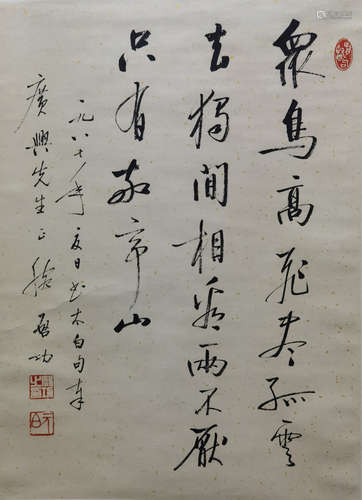 衆鳥高飛盡孤雲
去獨閒相看兩不厭
只有敬亭山
一九八七年夏日書太白句奉
廣興先生正腕 啓功